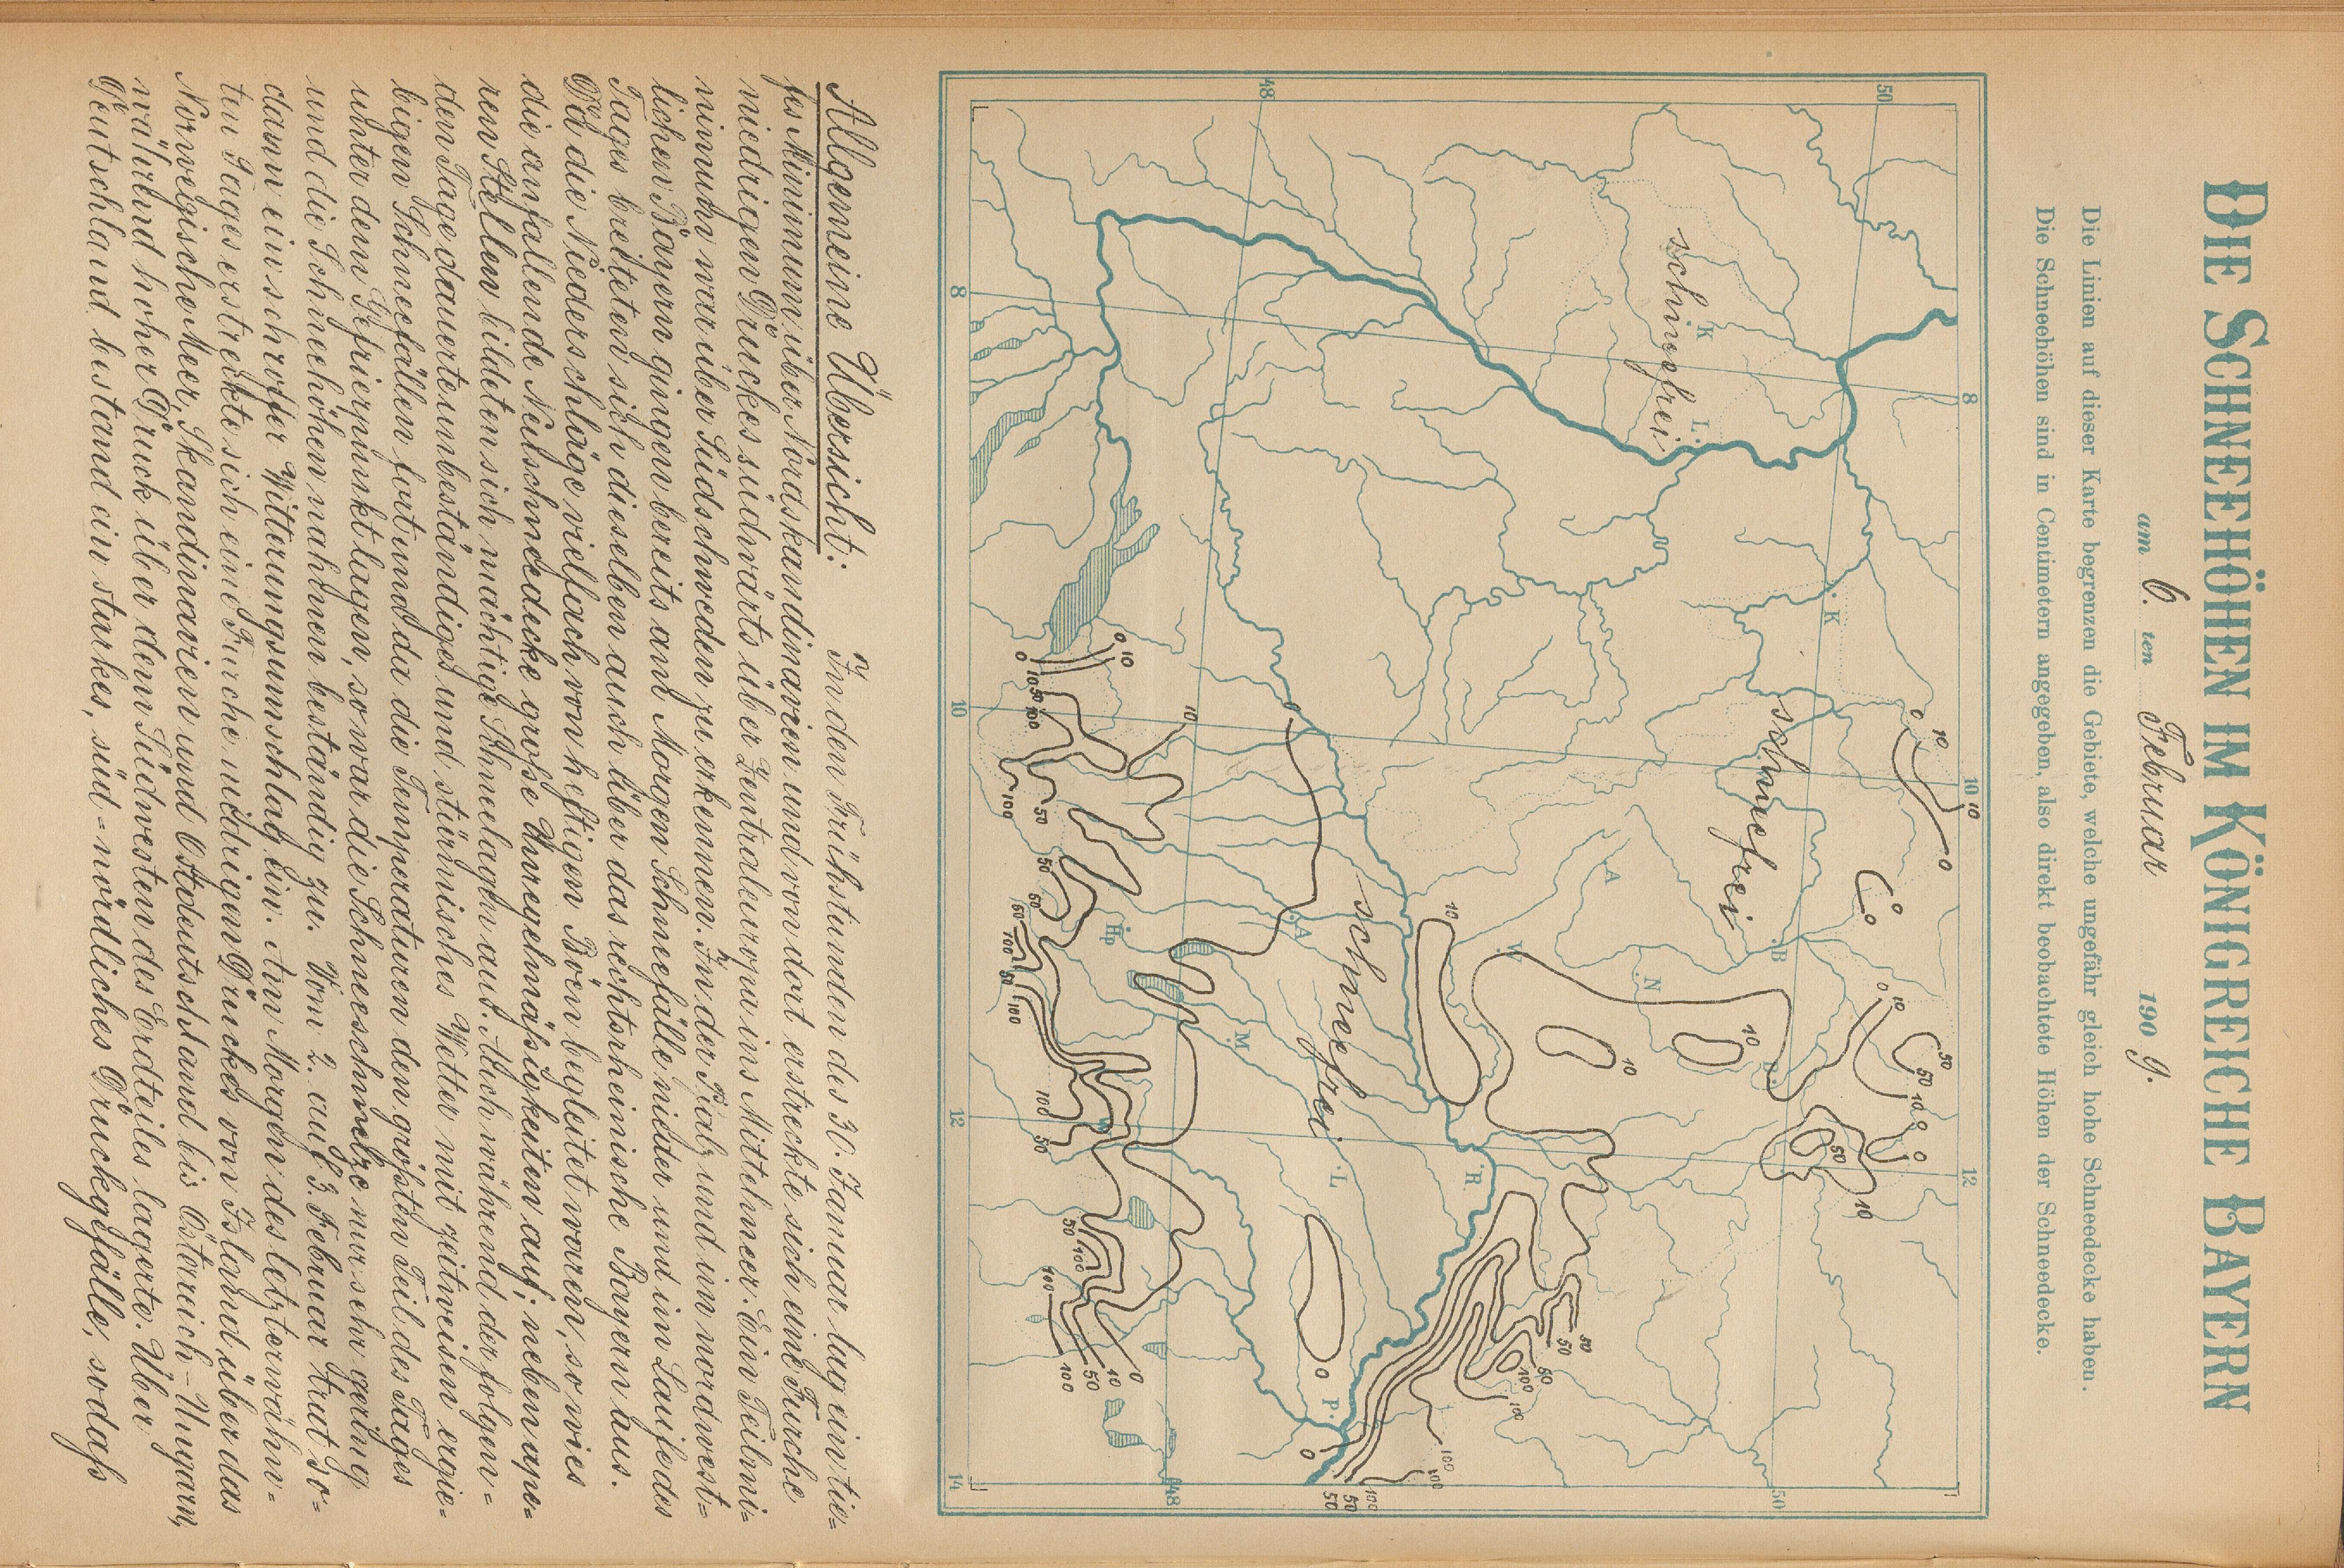 DIE SCHNEEHÖHEN IM KÖNIGREICHE BAYERN
am 6. ten Februar 1909.
Die Linien auf dieser Karte begrenzen die Gebiete, welche ungefähr gleich hohe Schneedecke haben.
Die Schneehöhen sind in Centimetern angegeben, also direkt beobachtete Höhen der Schneedecke.
8 10 12
50 50
schneefrei
schneefrei
schneefrei
K L. K B A N W A M R L P. Hp
0 10 50 100
48 48
8 10 12 14
Allgemeine Übersicht: In den Frühstunden des 30. Januar lag ein tie=
fes Minimum über Nordskandinavien und von dort erstreckte sich eine Furche
niedrigen Druckes südwärts über Zentraleuropa ins Mittelmeer. Ein Teilmi=
nimum war über Südschweden zu erkennen. In der Pfalz und im nordwest=
lichen Bayern gingen bereits am Morgen Schneefälle nieder und im Laufe des
Tages breiteten sich dieselben auch über das rechtsrheinische Bayern aus.
Da die Niederschläge vielfach von heftigen Böen begleitet waren, so wies
die anfallende Neuschneedecke große Unregelmäßigkeiten auf; neben ape=
ren Stellen bildeten sich mächtige Schneelagen aus. Auch während der folgen=
den Tage dauerte unbeständiges und stürmisches Wetter mit zeitweisen ergie=
bigen Schneefällen fort und da die Temperaturen den größten Teil des Tages
unter dem Gefrierpunkt lagen, so war die Schneeschmelze nur sehr gering
und die Schneehöhen nahmen beständig zu. Vom 2. auf 3. Februar trat so=
dann ein schroffer Witterungsumschlag ein. Am Morgen des letzterwähn=
ten Tages erstreckte sich eine Furche niedrigen Druckes von Island über das
Norwegische Meer, Skandinavien und Ostdeutschland bis Österreich-Ungarn,
während hoher Druck über dem Südwesten des Erdteiles lagerte. Über
Deutschland bestand ein starkes, süd=nördliches Druckgefälle, sodaß